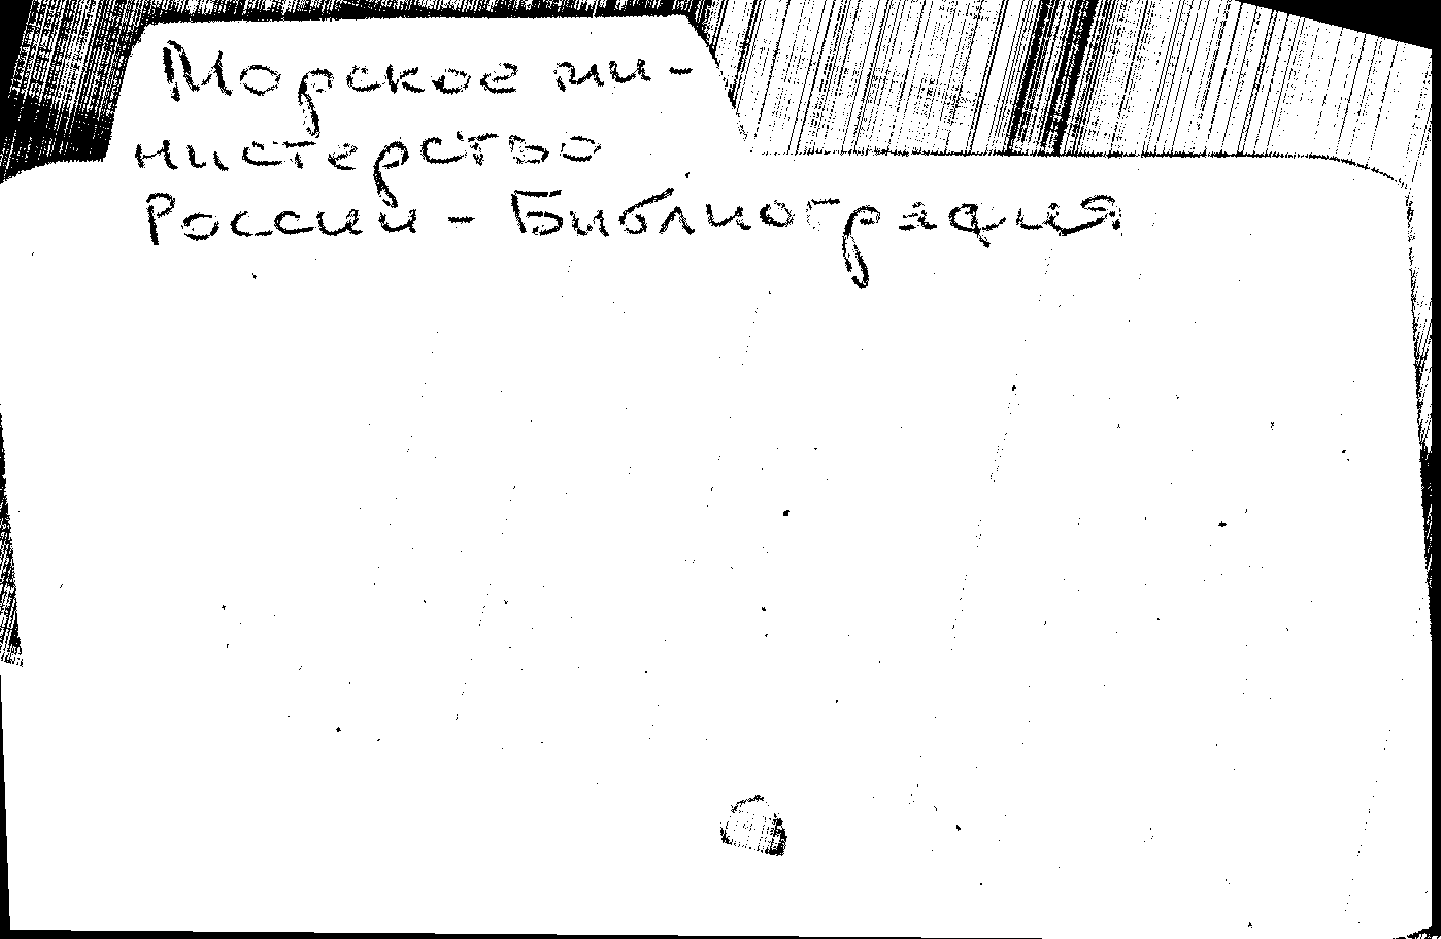 Морское ми-
нистерство
России - Библиография